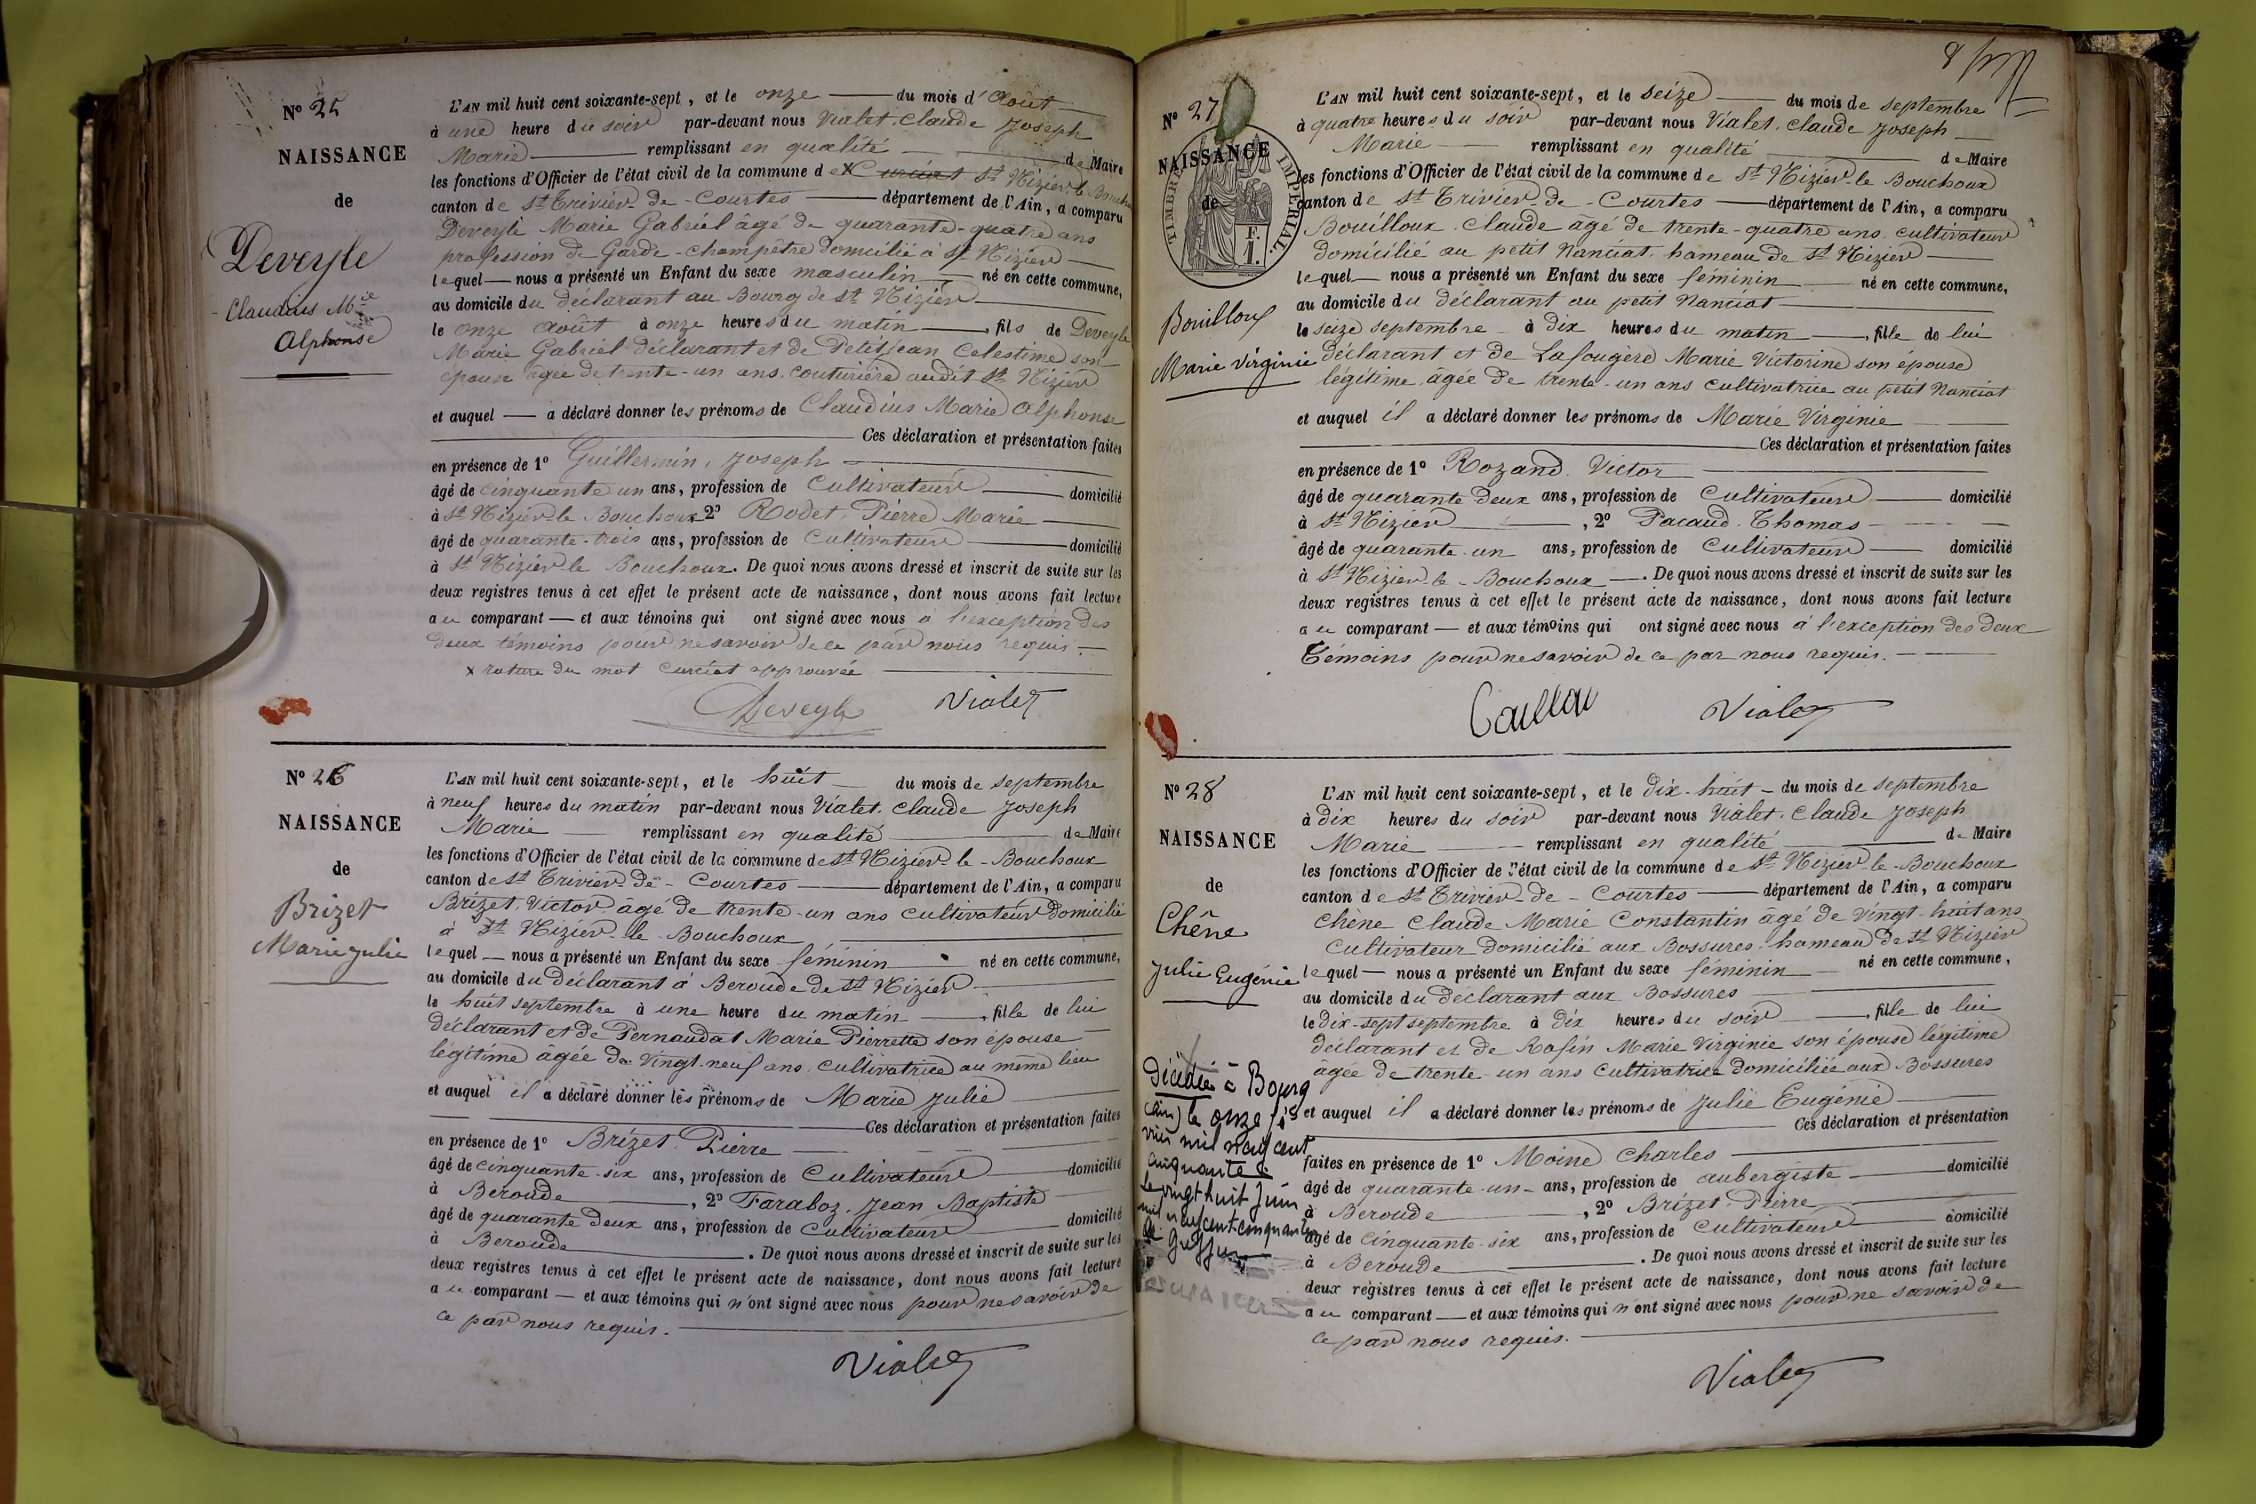 N° 25
NAISSANCE
de
Deveyle
Claudius Mie
Alphonse
L'AN mil huit cent soixante-sept, et le onze du mois d'Août
à une heure du soir par-devant nous Vialet, Claude Joseph
Marie remplissant en qualité de Maire
les fonctions d'Officier de l'état civil de la commune de x Curciat St Nizier-le-Bouchoux
canton de St Trivier-de-Courtes département de l'Ain, a comparu
Deveyle Marie Gabriel âgé de quarante-quatre ans
profession de Garde-champêtre domicilié à St Nizier
lequel nous a présenté un Enfant du sexe masculin né en cette commune,
au domicile du déclarant au Bourg de St Nizier
le onze Août à onze heures du matin, fils de Deveyle
Marie Gabriel déclarant et de Petitjean Celestine son
épouse âgée de trente-un ans couturière audit St Nizier
et auquel a déclaré donner les prénoms de Claudius Marie Alphonse
Ces déclaration et présentation faites
en présence de 1° Guillermin, Joseph
âgé de cinquante un ans, profession de Cultivateur domicilié
à St Nizier-le-Bouchoux 2° Rodet, Pierre Marie
âgé de quarante-trois ans, profession de Cultivateur domicilié
à St Nizier-le-Bouchoux. De quoi nous avons dressé et inscrit de suite sur les
deux registres tenus à cet effet le présent acte de naissance, dont nous avons fait lecture
au comparant et aux témoins qui ont signé avec nous à l'exception des
deux témoins pour ne savoir de ce par nous requis.
x rature du mot curciat approuvée
Deveyle Vialet
N° 26
NAISSANCE
de
Brizet
Marie Julie
L'AN mil huit cent soixante-sept, et le huit du mois de septembre
à neuf heures du matin par-devant nous Vialet, Claude Joseph
Marie remplissant en qualité de Maire
les fonctions d'Officier de l'état civil de la commune de St Nizier-le-Bouchoux
canton de St Trivier-de-Courtes département de l'Ain, a comparu
Brizet, Victor, âgé de trente-un ans cultivateur domicilié
à St Nizier-le-Bouchoux
lequel nous a présenté un Enfant du sexe féminin né en cette commune,
au domicile du déclarant à Beroude de St Nizier
le huit septembre à une heure du matin, fille de lui
déclarant et de Pernaudat Marie Pierrette son épouse
légitime âgée de Vingt-neuf ans, cultivatrice au même lieu
et auquel il a déclaré donner les prénoms de Marie Julie
Ces déclaration et présentation faites
en présence de 1° Brizet, Pierre
âgé de cinquante-six ans, profession de Cultivateur domicilié
à Beroude, 2° Faraboz, Jean Baptiste
âgé de quarante deux ans, profession de Cultivateur domicilié
à Beroude. De quoi nous avons dressé et inscrit de suite sur les
deux registres tenus à cet effet le présent acte de naissance, dont nous avons fait lecture
au comparant et aux témoins qui n'ont signé avec nous pour ne savoir de
ce par nous requis.
Vialet
8
N° 27
NAISSANCE
de
TIMBRE IMPÉRIAL.
F.
1.
Bouilloux
Marie Virginie
L'AN mil huit cent soixante-sept, et le seize du mois de septembre
à quatre heures du soir par-devant nous Vialet, Claude Joseph
Marie remplissant en qualité de Maire
les fonctions d'Officier de l'état civil de la commune de St Nizier-le Bouchoux
canton de St Trivier-de-Courtes département de l'Ain, a comparu
Bouilloux, Claude âgé de trente-quatre ans cultivateur
domicilié au petit Nanciat, hameau de St Nizier
lequel nous a présenté un Enfant du sexe féminin né en cette commune,
au domicile du déclarant au petit Nanciat
le seize septembre à dix heures du matin, fille de lui
déclarant et de Lafougère Marie Victorine son épouse
légitime, âgée de trente-un ans cultivatrice au petit Nanciat
et auquel il a déclaré donner les prénoms de Marie Virginie
Ces déclaration et présentation faites
en présence de 1° Rozand, Victor
âgé de quarante deux ans, profession de Cultivateur domicilié
à St Nizier, 2° Pacaud, Thomas
âgé de quarante-un ans, profession de Cultivateur domicilié
à St Nizier-le-Bouchoux. De quoi nous avons dressé et inscrit de suite sur les
deux registres tenus à cet effet le présent acte de naissance, dont nous avons fait lecture
au comparant et aux témoins qui ont signé avec nous à l'exception des deux
Témoins pour ne savoir de ce par nous requis.
Vialet
N° 28
NAISSANCE
de
Chêne
Julie Eugénie
Décédée à Bourg
(Ain) le onze fé
vrier mil neuf cent
cinquante.
Le vingt huit Juin
mil neuf cent cinquante
Le Greffier
L'AN mil huit cent soixante-sept, et le dix-huit du mois de septembre
à dix heures du soir par-devant nous Vialet, Claude Joseph
Marie remplissant en qualité de Maire
les fonctions d'Officier de l'état civil de la commune de St Nizier-le-Bouchoux
canton de St Trivier-de-Courtes département de l'Ain, a comparu
Chêne Claude Marie Constantin âgé de Vingt-huit ans
Cultivateur domicilié aux Bossures, hameau de St Nizier
lequel nous a présenté un Enfant du sexe féminin né en cette commune,
au domicile du déclarant aux Bossures
le dix-sept septembre à dix heures du soir, fille de lui
déclarant et de Rafin Marie Virginie son épouse légitime
âgée de trente-un ans Cultivatrice domiciliée aux Bossures
et auquel il a déclaré donner les prénoms de Julie Eugénie
Ces déclaration et présentation
faites en présence de 1° Moine Charles
âgé de quarante-un ans, profession de aubergiste domicilié
à Beroude, 2° Brizet, Pierre
âgé de cinquante-six ans, profession de Cultivateur domicilié
à Beroude. De quoi nous avons dressé et inscrit de suite sur les
deux registres tenus à cet effet le présent acte de naissance, dont nous avons fait lecture
au comparant et aux témoins qui n'ont signé avec nous pour ne savoir de
ce par nous requis.
Vialet